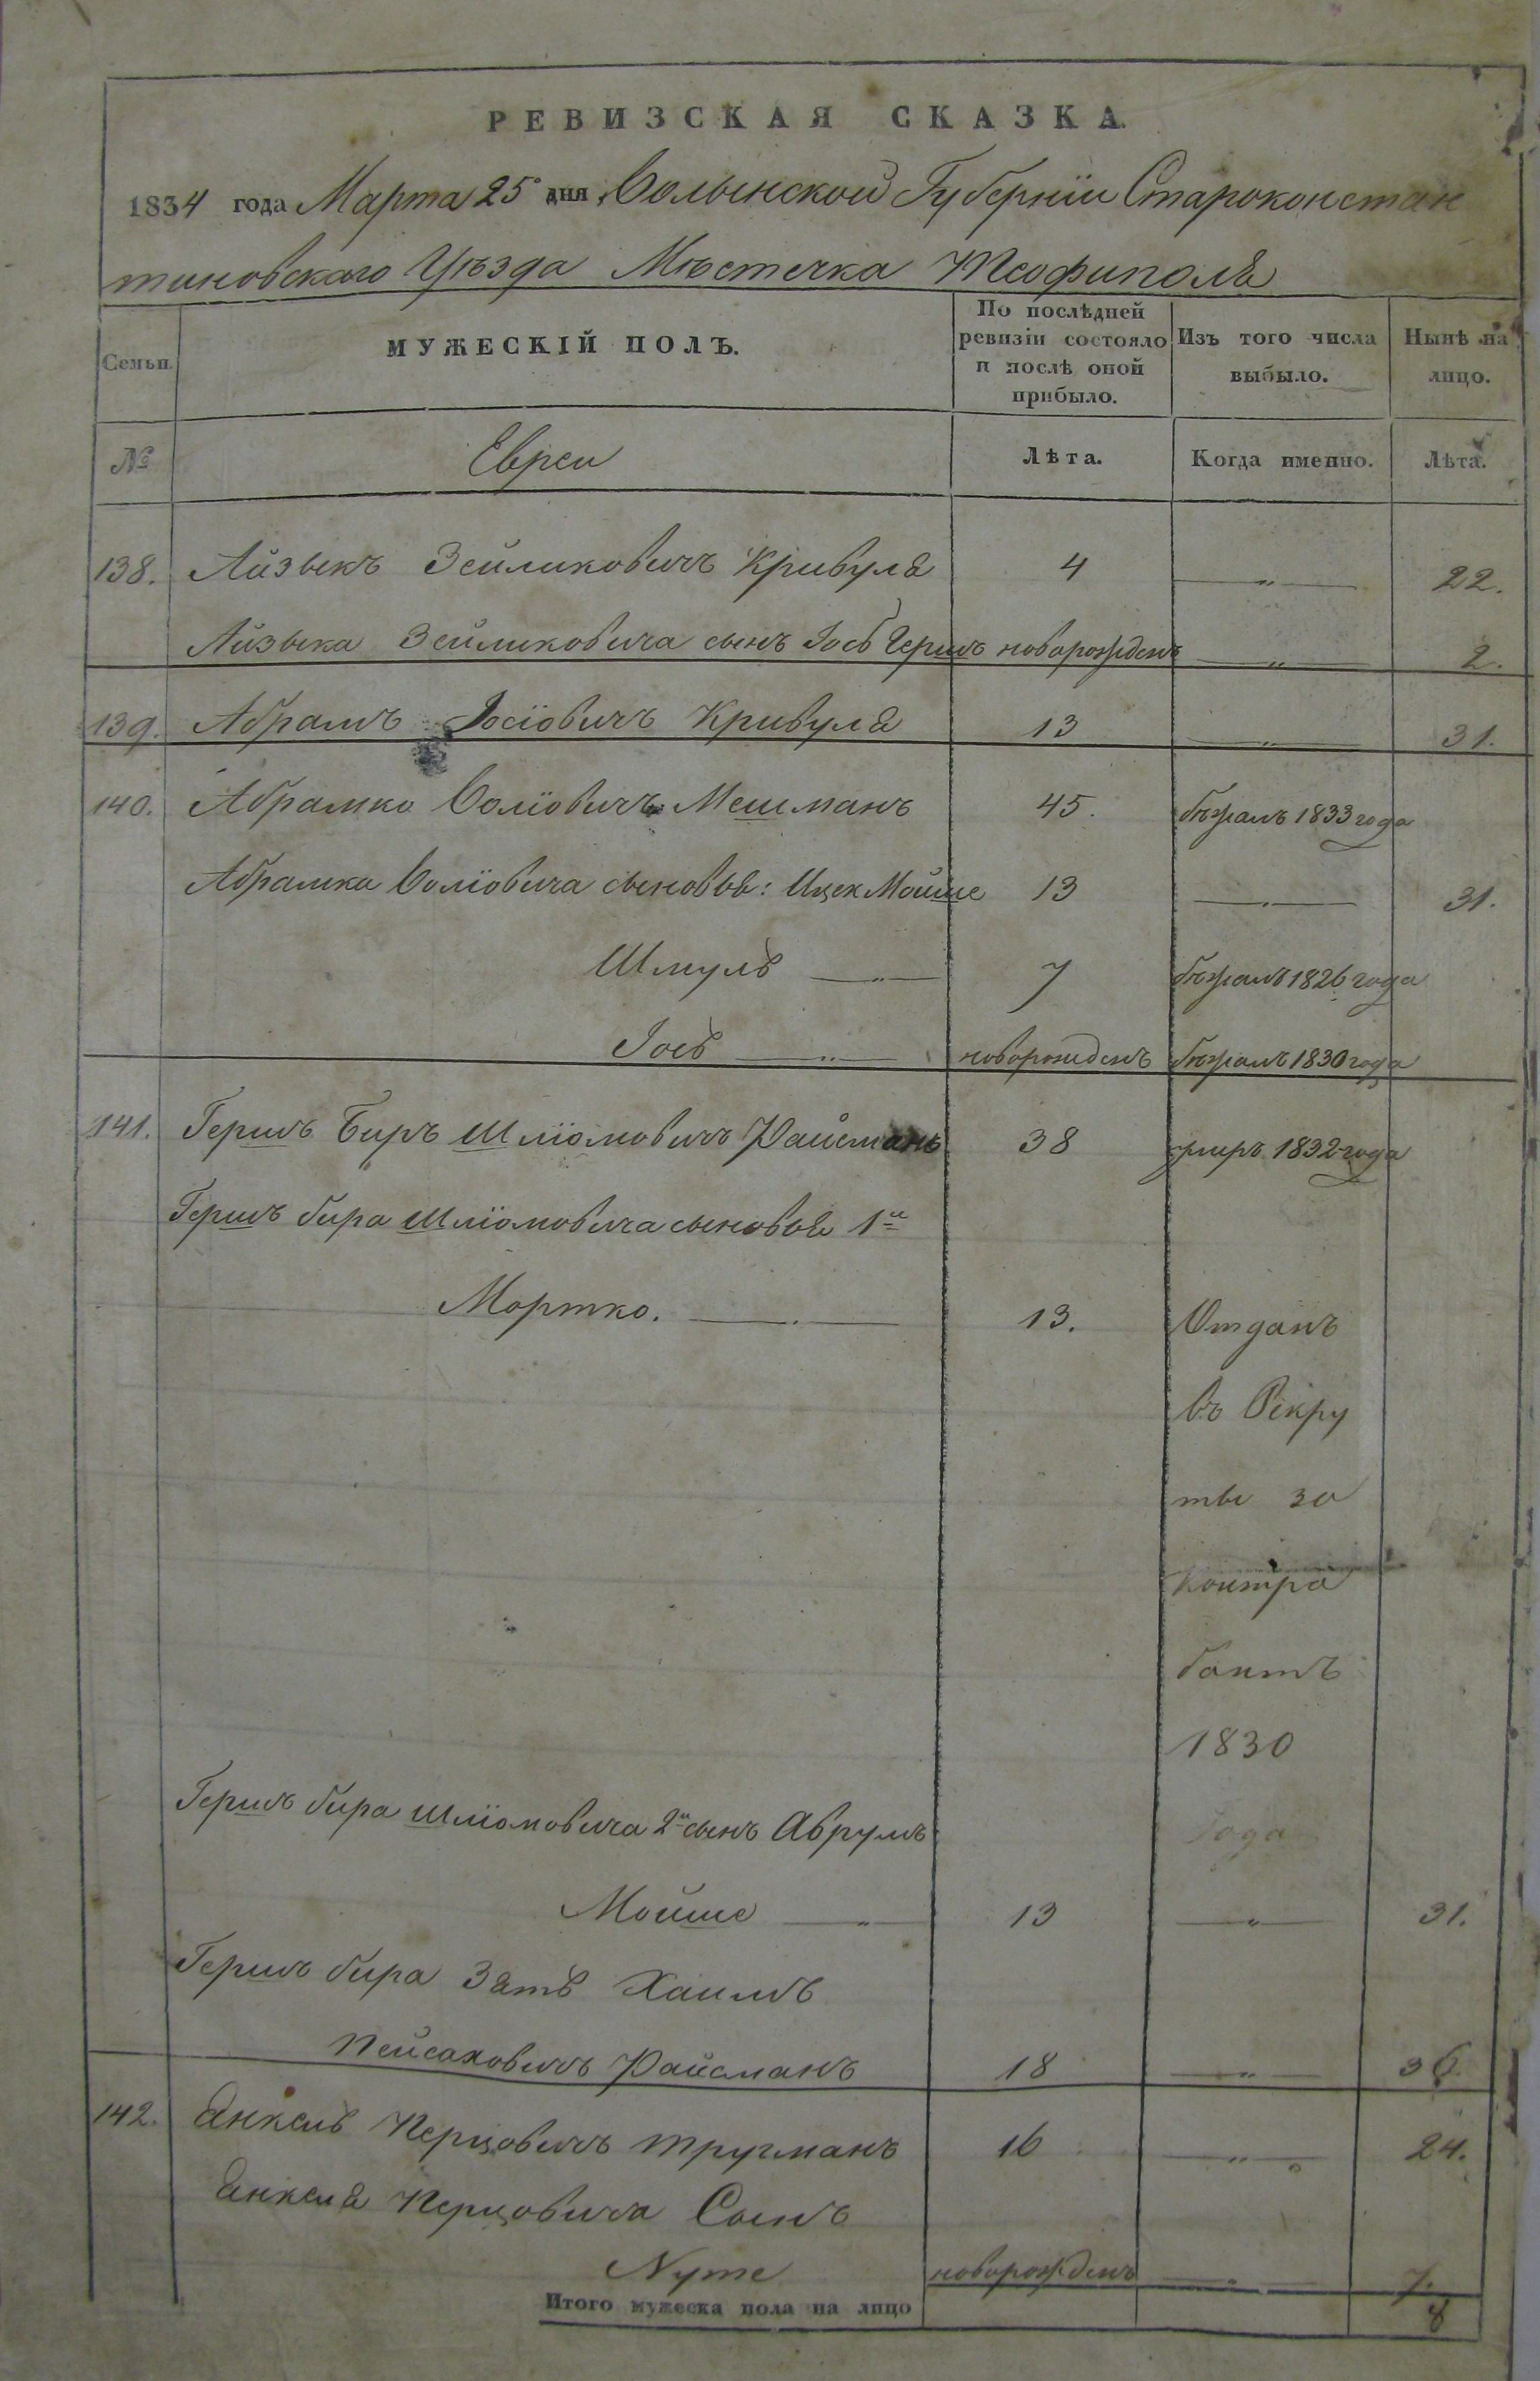 РЕВИЗСКАЯ СКАЗКА.
1834 года Марта 25 дня Волынской Губерніи Староконстан
тиновскаго Уѣзда Мѣстечка Теофиполя
Семьи.
МУЖЕСКІЙ ПОЛЪ.
По послѣдней ревизіи состояло и послѣ оной прибыло.
Изъ того числа выбыло.
Нынѣ на лицо.
№ Евреи Лѣта. Когда именно. Лѣта.
138. Айзыкъ Зейликовичъ Кривуля 4 —„— 22.
Айзыка Зейликовича сынъ Іось Гершъ новорожденъ —„— 2.
139. Абрамъ Іосіовичъ Кривуля 13 —„— 31.
140. Абрамко Воліовичъ Мешманъ 45. бѣжалъ 1833 года
Абрамка Воліовича сыновья: Ицек Мойше 13 —„— 31.
Шмуль —„— 7 бѣжалъ 1826 года
Іось —„— новорожденъ бѣжалъ 1830 года
141. Гершъ Биръ Шліомовичъ Райсманъ 38 умиръ 1832 года
Гершъ бира Шліомовича сыновья 1й
Мортко. —„— 13. Отданъ
въ Рекру
ты за
контра
бантъ
1830
Гершъ бира Шліомовича 2й сынъ Аврумъ года
Мойше —„— 13 —„— 31.
Гершъ бира Зять Хаимъ
Пейсаховичъ Райсманъ 18 —„— 36.
142. Янкель Перцовичъ Тругманъ 16 —„— 24.
Янкеля Перцовича Сынъ
Нуте новорожденъ —„— 7.
Итого мужеска пола на лицо 8